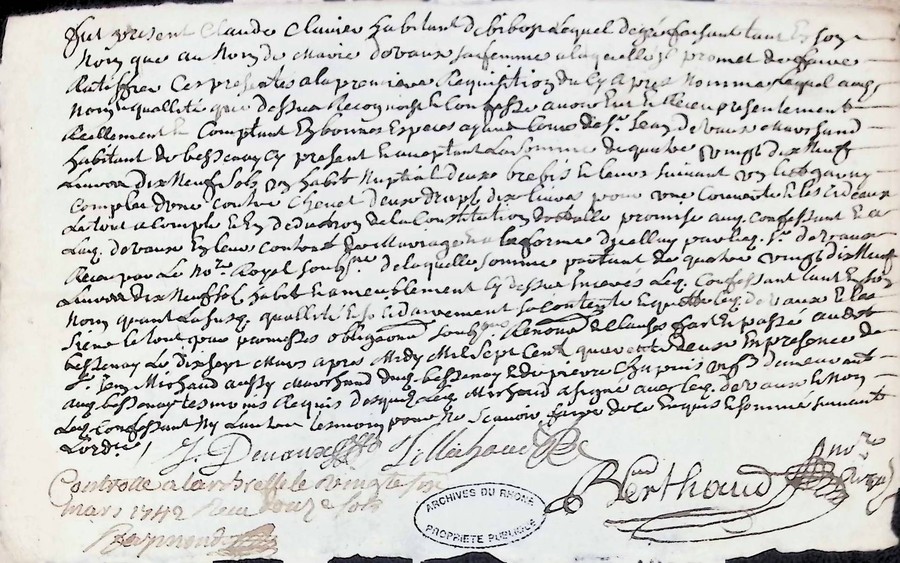 Fut present Claude Clavier habitant de bibost lequel de gré faisant tant en son
Nom que au Nom de Marie devaux sa femme a laquelle il promet de faire
Ratiffier Ces presentes a la premiere Requisition du Cy apres nommé lequel auxd.
Noms quallités que dessus Reconnoist et Confesse avoir Eu et Receu presentement
Reellement et Comptant En bonnes Especes ayant Cours de Sr. Jean devaux Marchand
habitant de bessenay Cy present et acceptant La somme de quatre vingt dix Neuf
Livres dix Neuf sols un habit Nuptial deux brebis et leurs suivant un lict garny
Complet d'une Coutre Chevet deux draps dix livres pour une Couverte et les Rideaux
Le tout a Compte et En deduction de la Constitution dotalle promise aud. Confessant et a
Lad. devaux En leur Contrat de Mariage la forme d'icelluy par led. Sr. devaux
Receu par Le Notre. Royal soubsigné de laquelle somme partant de quatre vingt dix Neuf
Livres dix Neuf sols habit et ameublement Cy dessus Led. Confessant tant En son
Nom quant La susd. quallité Et solidairement se Contente Et quitte led. devaux Et les
siens le tout par promesses obligations soubs Renond. et Clauses fait Et passé audit
bessenay Le dix sept Mars apres Midy Mil sept Cent quarente deux En presence de
Sr. Jean Michaud aussy Marchand dud. bessenay Et de pierre Chapuis demeurant
aud. bessenay tesmoins Requis desquels Led. Michaud a signé avec led. devaux et Non
Led. Confessant Ny L'autre tesmoin pour Ne Scavoir faire de ce Enquis Et sommé suivant
L'ordce.
J. Devaux J. Michaud
Berthaud Nore Royal
Controllé a larbresle le vingt
mars 1742 Receu douze sols
Raymond
ARCHIVES DU RHÔNE
PROPRIÉTÉ PUBLIQUE